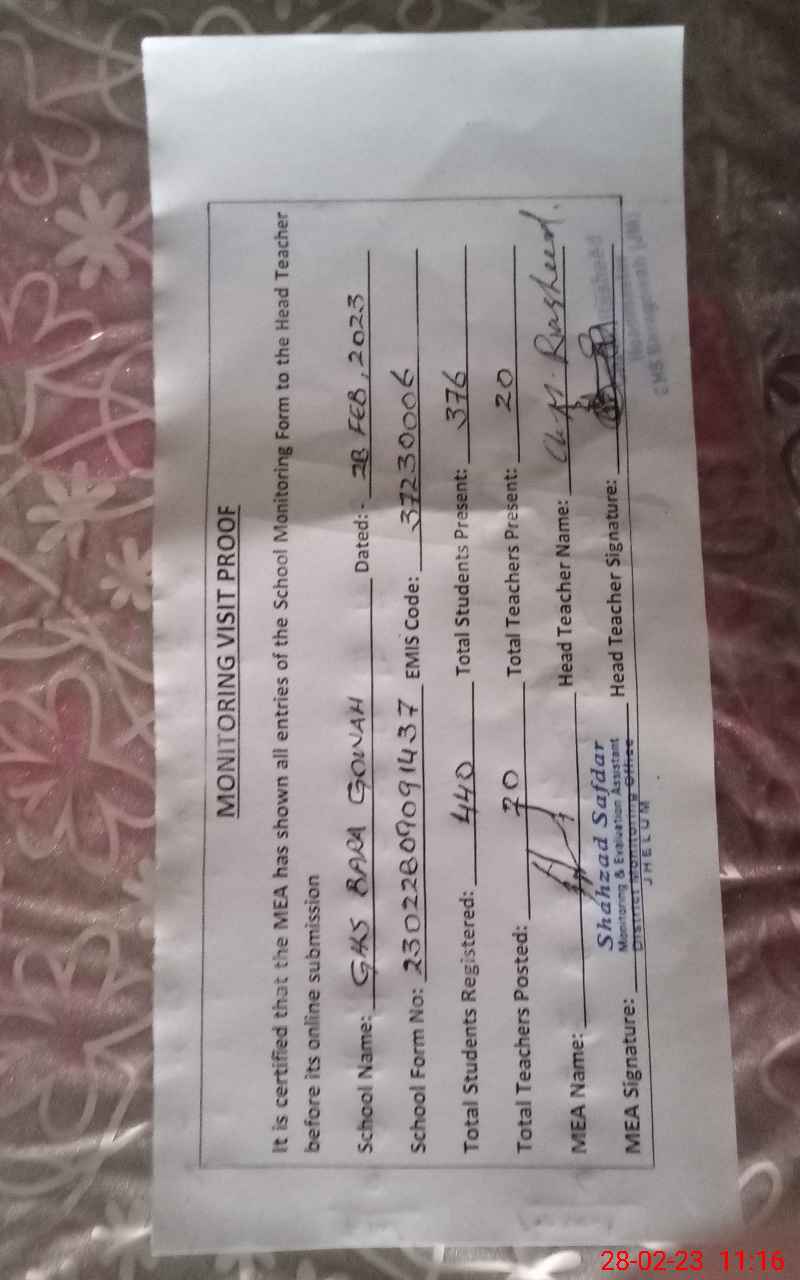 MONITORING VISIT PROOF
It is certified that the MEA has shown all entries of the School Monitoring Form to the Head Teacher
before its online submission
School Name: GHS BARA GOWAH Dated:- 28 FEB, 2023
School Form No: 23022809091437 EMIS Code: 37230006
Total Students Registered: 440 Total Students Present: 376
Total Teachers Posted: 20 Total Teachers Present: 20
MEA Name: Head Teacher Name: Ch. M. Rasheed.
Shahzad Safdar
Monitoring & Evaluation Assistant
District Monitoring Office
JHELUM
MEA Signature: Head Teacher Signature:
28-02-23 11:16